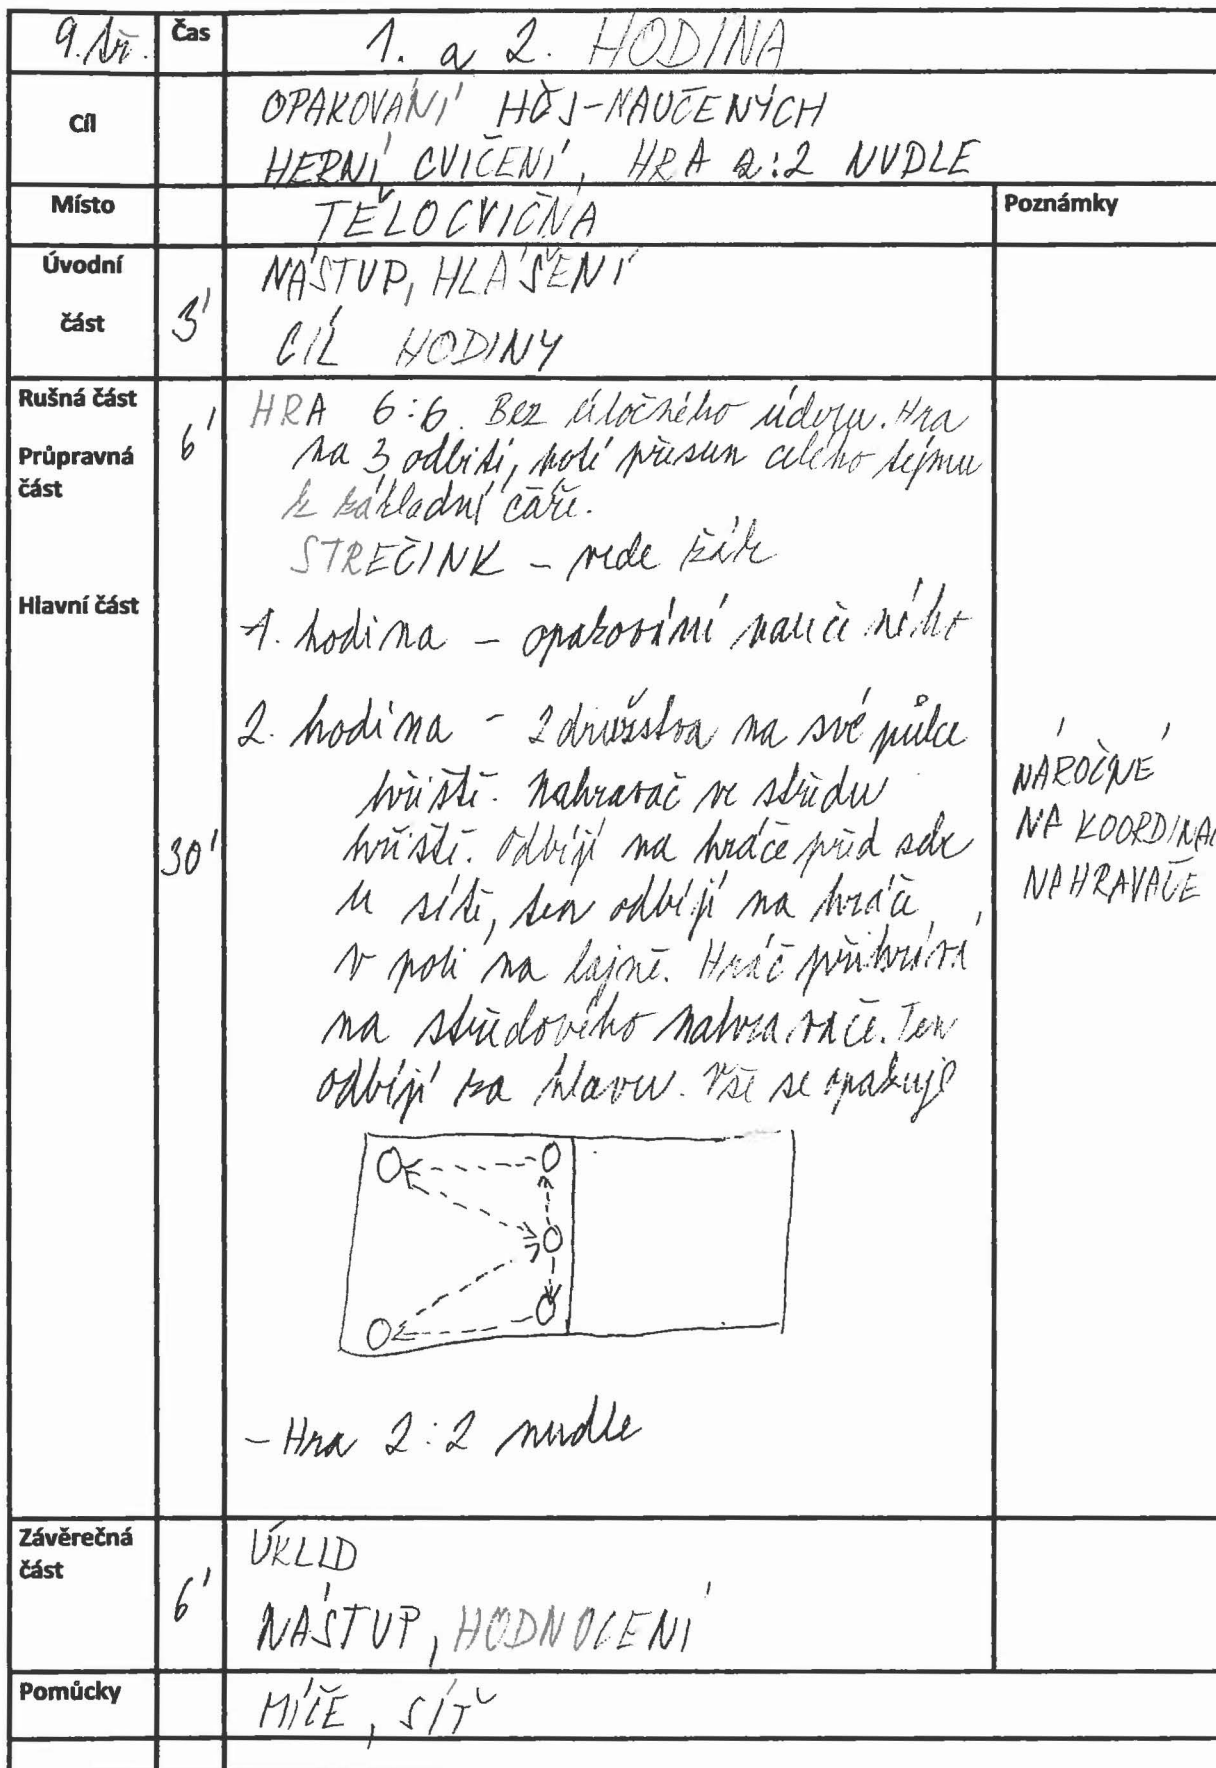 9. tř. Čas 1. a 2. HODINA
Cíl OPAKOVÁNÍ HČJ-NAUČENÝCH
HERNÍ CVIČENÍ, HRA 2:2 NUDLE
Místo TĚLOCVIČNA Poznámky
Úvodní NÁSTUP, HLÁŠENÍ
část 3' CÍL HODINY
Rušná část 6' HRA 6:6. Bez útočného úderu. Hra
Průpravná na 3 odbití, poté přesun celého týmu
část k základní čáře.
STREČINK – vede žák
Hlavní část 1. hodina – opakování naučeného
2. hodina – 2 družstva na své půlce
hřiště. Nahravač ve středu
30' hřiště. Odbíjí na hráče před sebe
u sítě, ten odbíjí na hráče
v poli na lajně. Hráč přihrává
na středového nahravače. Ten
odbíjí za hlavu. Vše se opakuje
NÁROČNÉ
NA KOORDINAC
NAHRAVAČE
– Hra 2:2 nudle
Závěrečná ÚKLID
část 6' NÁSTUP, HODNOCENÍ
Pomůcky MÍČE, SÍŤ